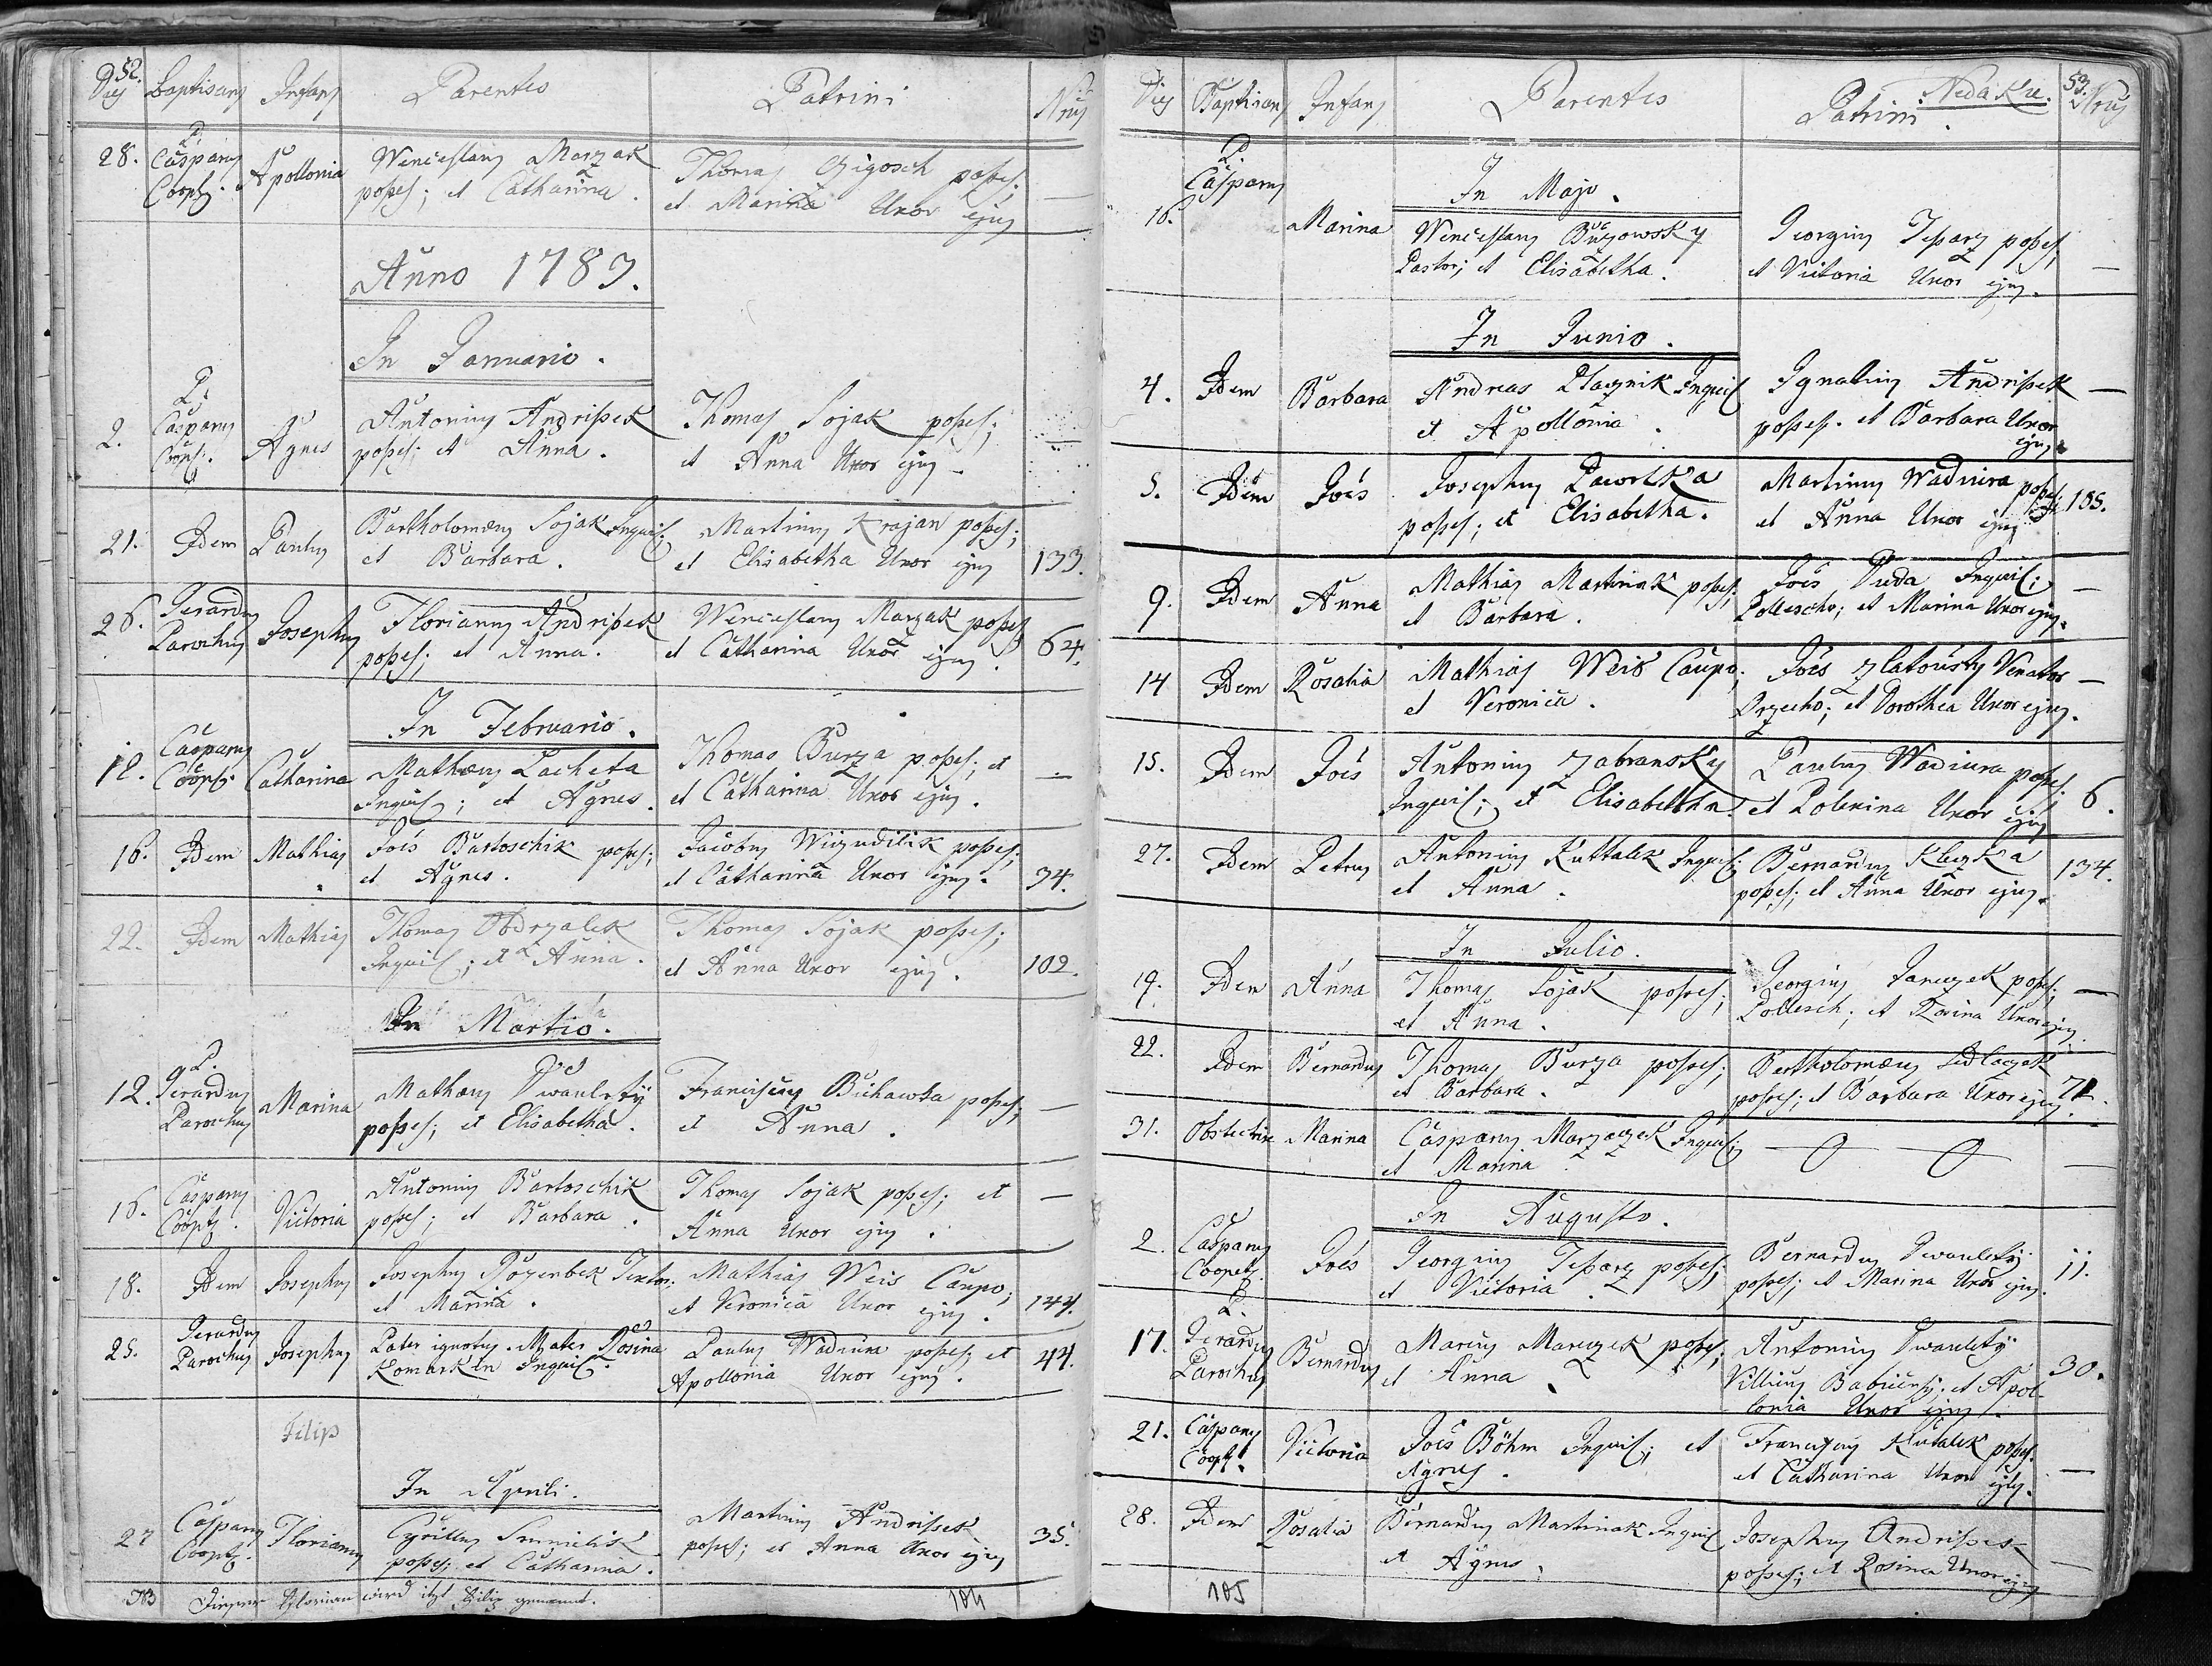 52.
Dies Baptisans Infans Parentes Patrini Nrus
28. P. Casparus Coopt. Apollonia Wenceslaus Marzak posses; et Catharina. Thomas Gigosch posses; et Marina Uxor ejus —
Anno 1783.
In Januario.
2. P. Casparus Coopt. Agnes Antonius Andrißek posses; et Anna. Thomas Sojak posses; et Anna Uxor ejus —
21. Idem Paulus Bartholomæus Sojak Inquil; et Barbara. Martinus Krajan posses; et Elisabetha Uxor ejus 133.
26. Gerardus Parochus Josephus Florianus Andrißek posses; et Anna. Wenceslaus Marzak posses et Catharina Uxor ejus. 64.
In Februario.
12. Casparus Coopt. Catharina Mathæus Lacheta Inquil; et Agnes. Thomas Burza posses; et et Catharina Uxor ejus. —
16. Idem Mathias Joës Bartoschik posses; et Agnes. Jacobus Wizudilik posses; et Catharina Uxor ejus. 34.
22. Idem Mathias Thomas Obdrzalek Inquil; et Anna. Thomas Sojak posses; et Anna Uxor ejus. 102.
In Martio.
12. P. Gerardus Parochus Marina Mathæus Dwaulety posses; et Elisabetha. Franciscus Bichawka posses; et Anna. —
16. Casparus Coopt. Victoria Antonius Bartoschik posses; et Barbara. Thomas Sojak posses; et Anna Uxor ejus. —
18. Idem Josephus Josephus Rozenbek Textor; et Marina. Mathias Weis Caupo; et Veronica Uxor ejus. 144.
25. Gerardus Parochus Josephus Pater ignotus. Mater Rosina Komarkin Inquil. Paulus Wadiura posses; et Apollonia Uxor ejus. 44.
Filip
In Aprili.
27 Casparus Coopt. Florianus Cyrillus Smicilik posses; et Catharina. Martinus Andrißek posses; et Anna Uxor ejus 35.
NB Dieser Florian wird itzt Filip genannt.
104
53.
Nedaku.
Dies Baptisans Infans Parentes Patrini. Nrus
In Majo.
16. P. Casparus Marina Wenceslaus Buzowsky Pastor; et Elisabetha. Georgius Teßarz posses; et Victoria Uxor ejus. —
In Junio.
4. Idem Barbara Andreas Placznik Inquil et Apollonia. Ignatius Andrißek posses. et Barbara Uxor ejus. —
5. Idem Joës Josephus Pawelka posses; et Elisabetha. Martinus Wadiura posses; et Anna Uxor ejus 105.
9. Idem Anna Mathias Martinak posses; et Barbara. Joës Duda Inquil; Polescho; et Marina Uxor ejus. —
14 Idem Rosalia Mathias Weis Caupo; et Veronica. Joës Zlatousty Venator Orzecho; et Dorothea Uxor ejus. —
15. Idem Joës Antonius Zabransky Inquil; et Elisabetha. Paulus Wadiura posses; et Polexina Uxor ejus 6.
27. Idem Petrus Antonius Kuttalek Inquil; et Anna. Bernardus Kleczka posses; et Anna Uxor ejus. 134.
In Julio.
19. Idem Anna Thomas Sojak posses; et Anna. Georgius Janczek posses; Pollesch; et Rosina Uxor ejus —
22. Idem Bernardus Thomas Burza posses; et Barbara. Bartholomæus Sedlaczek posses; et Barbara Uxor ejus 71.
31. Obstetrix Marina Casparus Marzaczek Inquil; et Marina. — 0 — 0 —
In Augusto.
2. Casparus Coopt. Joës Georgius Teßarz posses; et Victoria. Bernardus Dwaulety posses; et Marina Uxor ejus. 11.
17. P. Gerardus Parochus Bernardus Marcus Marczek posses; et Anna. Antonius Dwaulety Villicus Babicensis; et Apollonia Uxor ejus. 30.
21. Casparus Coopt. Victoria Joës Böhm Inquil; et Agnes. Franciscus Kutalek posses. et Catharina Uxor ejus. —
28. Idem Rosalia Bernardus Martinak Inquil et Agnes. Josephus Andrißek posses; et Rosina Uxor ejus —
105